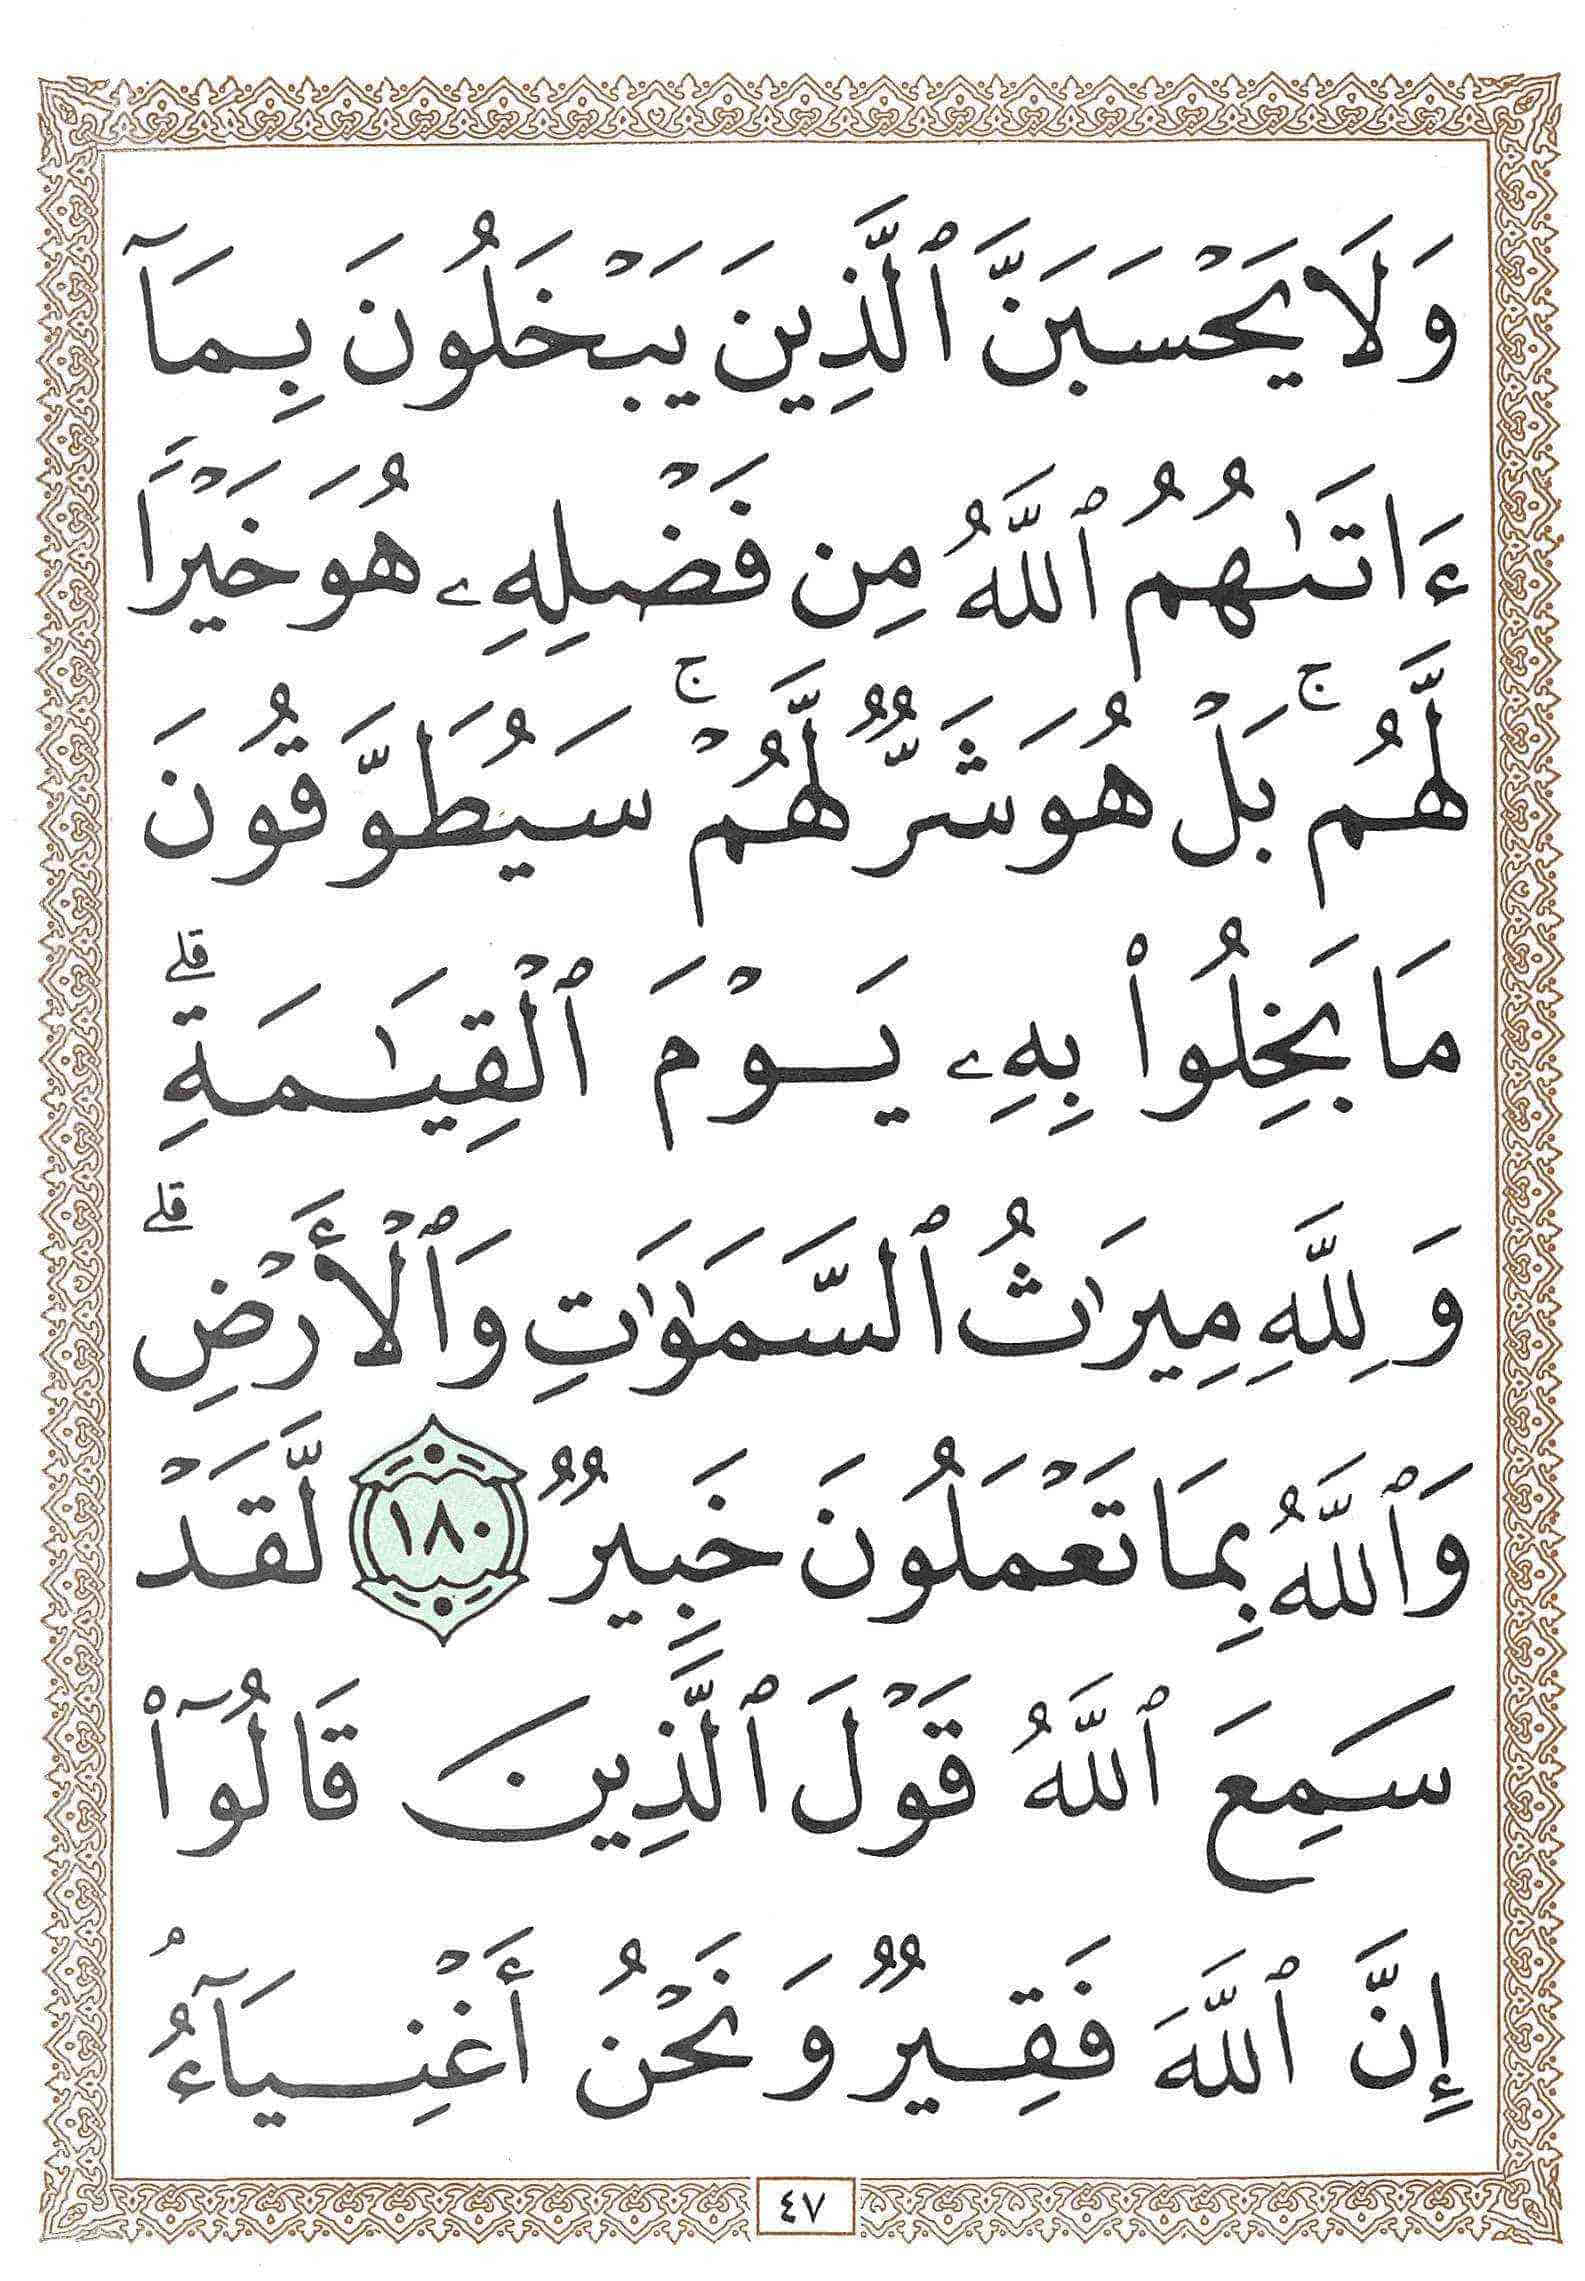 وَلَا يَحْسَبَنَّ ٱلَّذِينَ يَبْخَلُونَ بِمَآ
ءَاتَىٰهُمُ ٱللَّهُ مِن فَضْلِهِۦ هُوَ خَيْرًا
لَّهُمۚ بَلْ هُوَ شَرٌّ لَّهُمْۚ سَيُطَوَّقُونَ
مَا بَخِلُوا۟ بِهِۦ يَوْمَ ٱلْقِيَٰمَةِۗ
وَلِلَّهِ مِيرَٰثُ ٱلسَّمَٰوَٰتِ وَٱلْأَرْضِۗ
وَٱللَّهُ بِمَا تَعْمَلُونَ خَبِيرٌ ١٨٠ لَّقَدْ
سَمِعَ ٱللَّهُ قَوْلَ ٱلَّذِينَ قَالُوٓا۟
إِنَّ ٱللَّهَ فَقِيرٌ وَنَحْنُ أَغْنِيَآءُۘ
٤٧